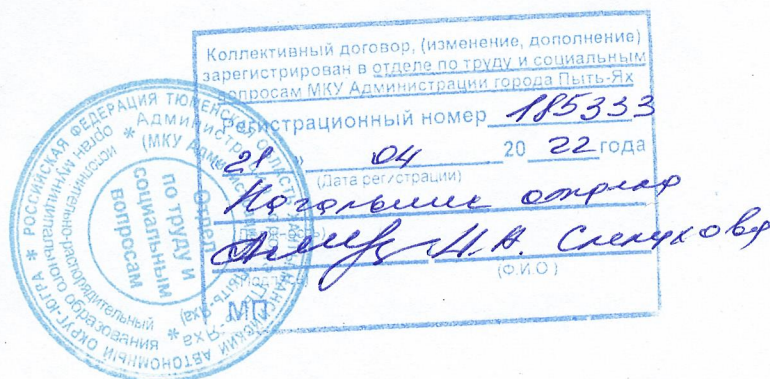 Коллективный договор, (изменение, дополнение)
зарегистрирован в отделе по труду и социальным
вопросам МКУ Администрации города Пыть-Ях
Регистрационный номер 185333
21 » 04 20 22 года
(Дата регистрации)
Начальник отдела
И.А.
(Ф.И.О)
МП
РОССИЙСКАЯ ФЕДЕРАЦИЯ ТЮМЕНСКАЯ ОБЛАСТЬ
АВТОНОМНЫЙ ОКРУГ-ЮГРА *
исполнительно-распорядительный
орган муниципального образования
(МКУ
Отдел
по труду и
социальным
вопросам